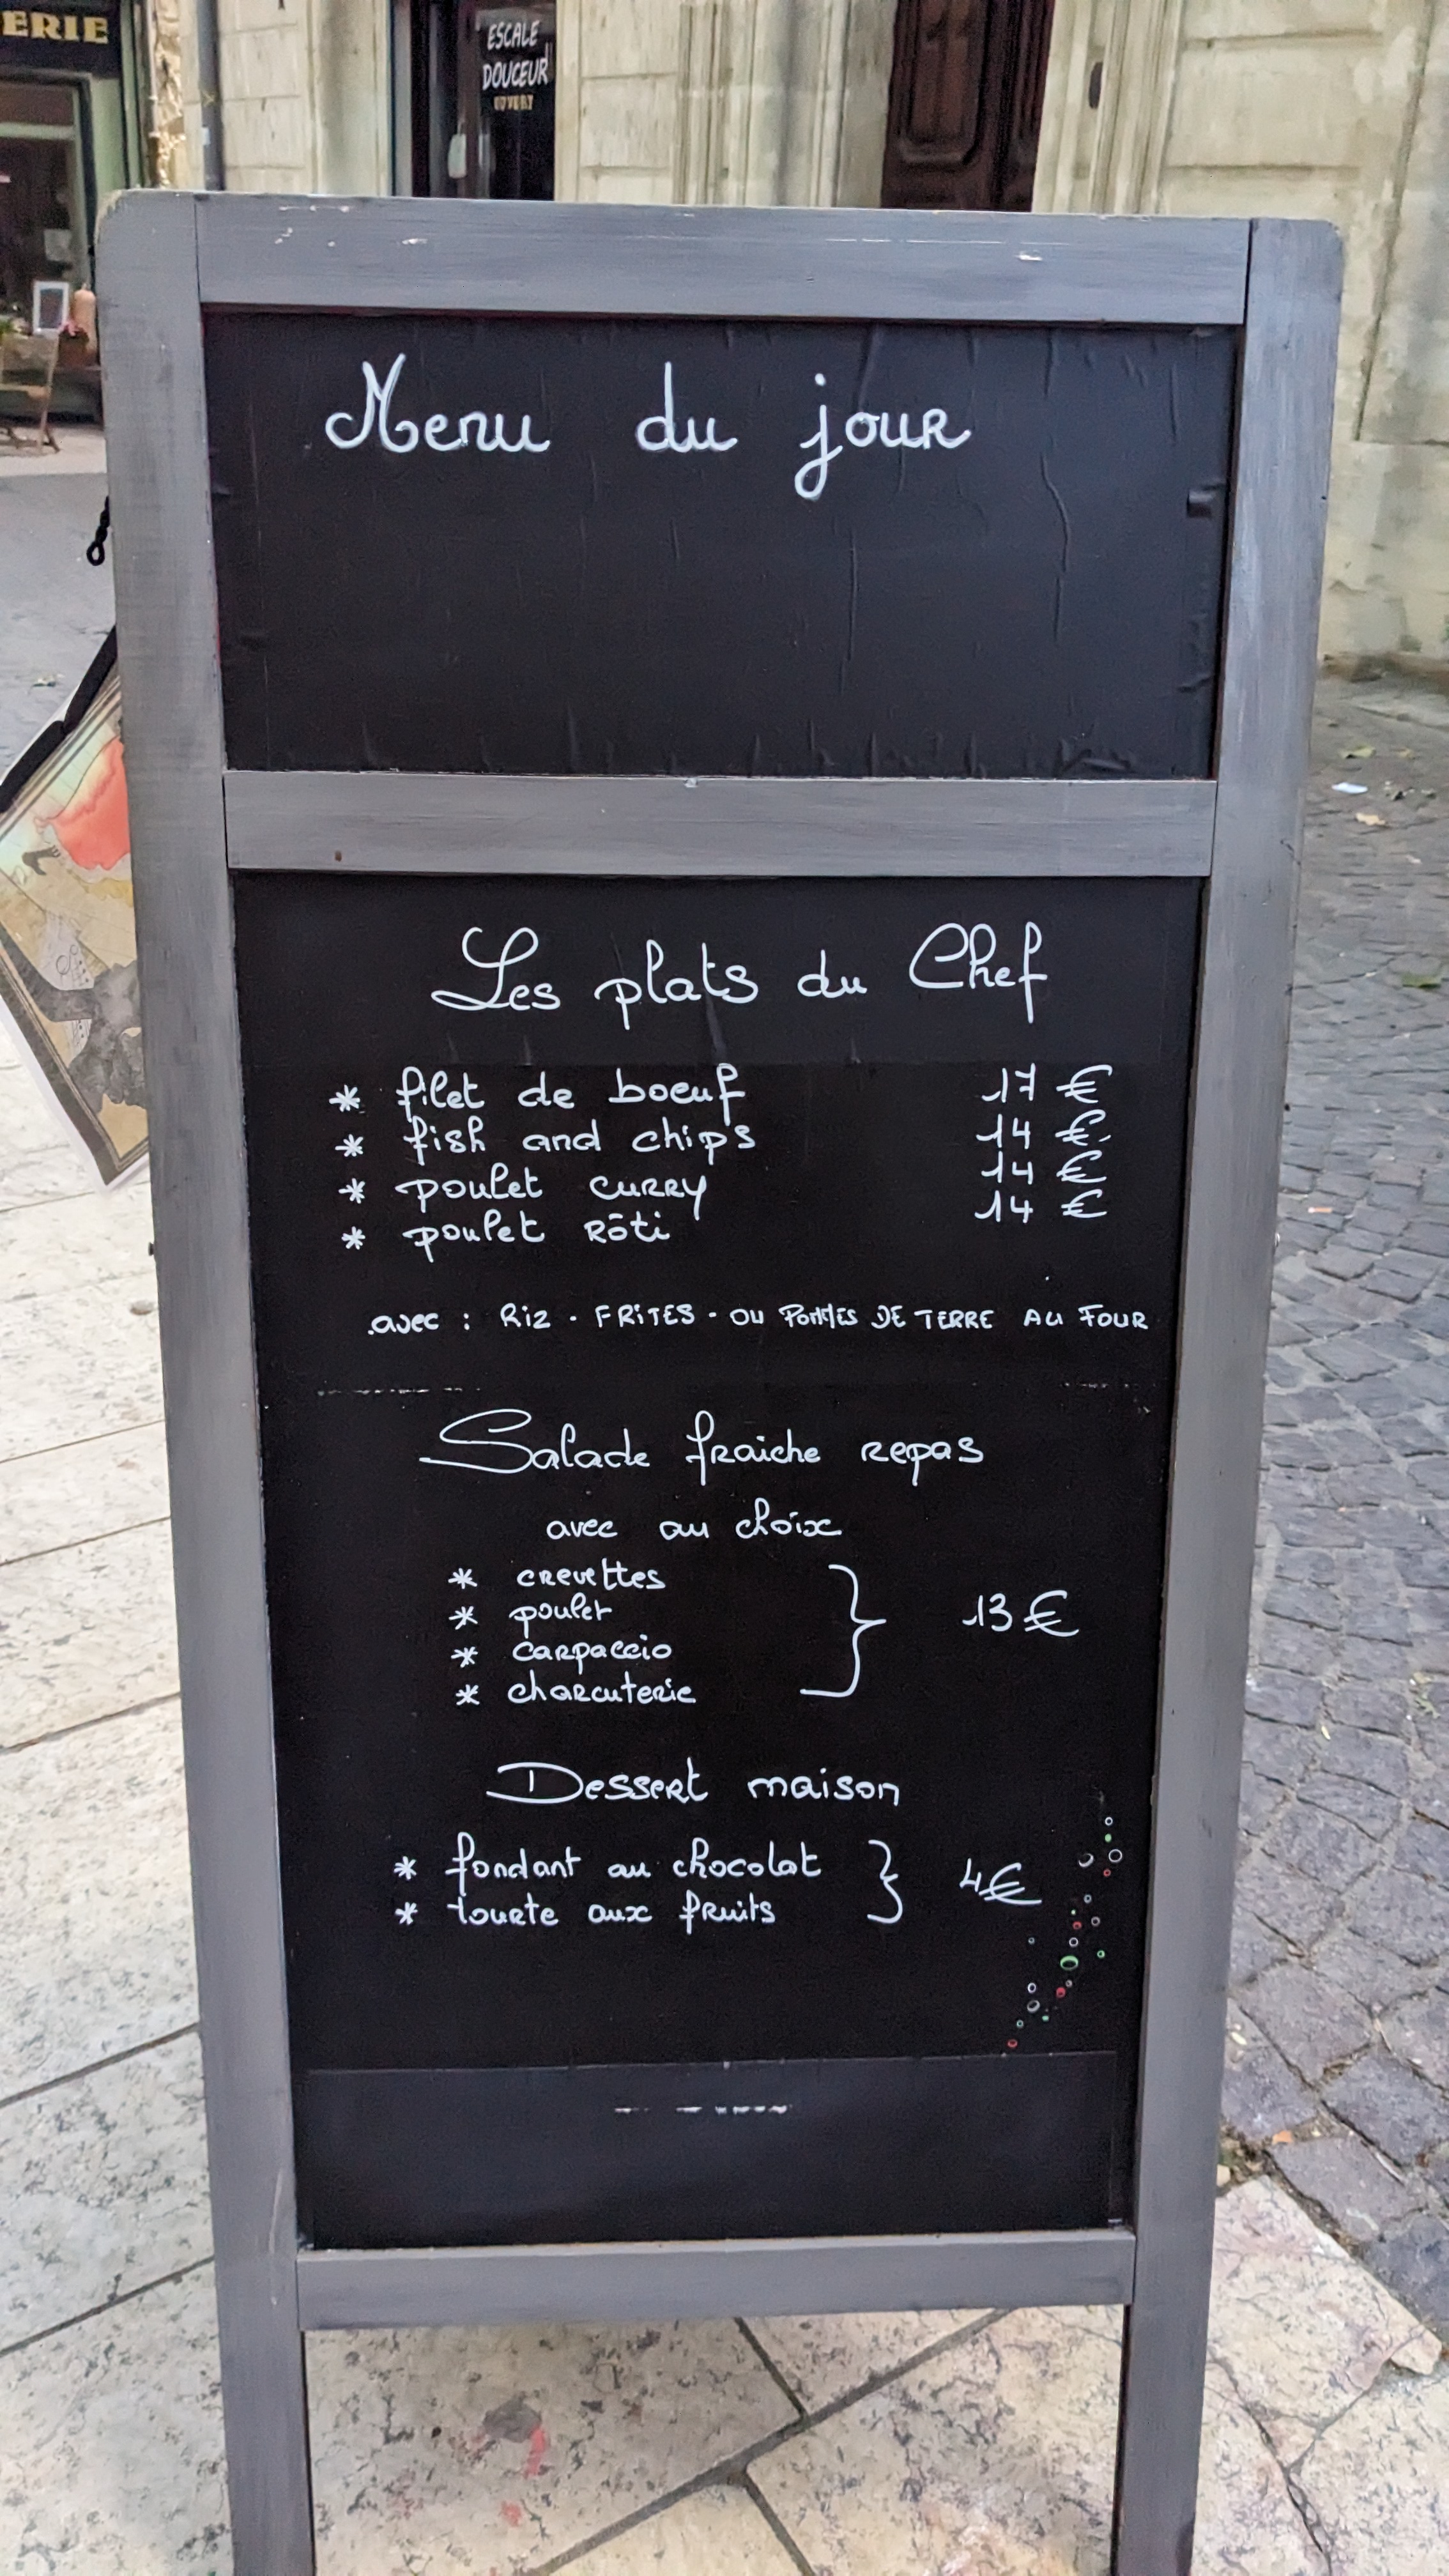 ERIE
ESCALE
DOUCEUR
OUVERT
Menu du jour
Les plats du Chef
* filet de boeuf 17 €
* fish and chips 14 €
* poulet curry 14 €
* poulet Rôti 14 €
avec : Riz - FRITES - OU POMMES DE TERRE AU FOUR
Salade fraiche repas
avec au choix
* crevettes
* poulet
* carpaccio
* charcuterie
13 €
Dessert maison
* fondant au chocolat
* tourte aux fruits
4 €